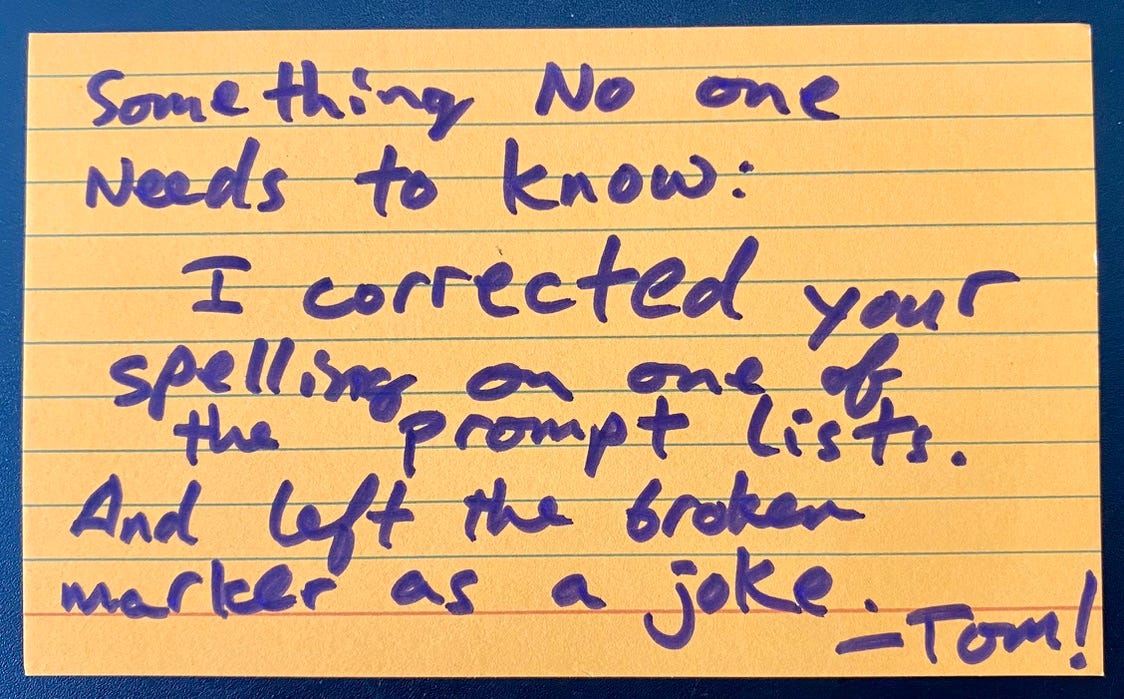 Something No one
Needs to know:
I corrected your
spelling on one of
the prompt lists.
And left the broken
marker as a joke.
—Tom!